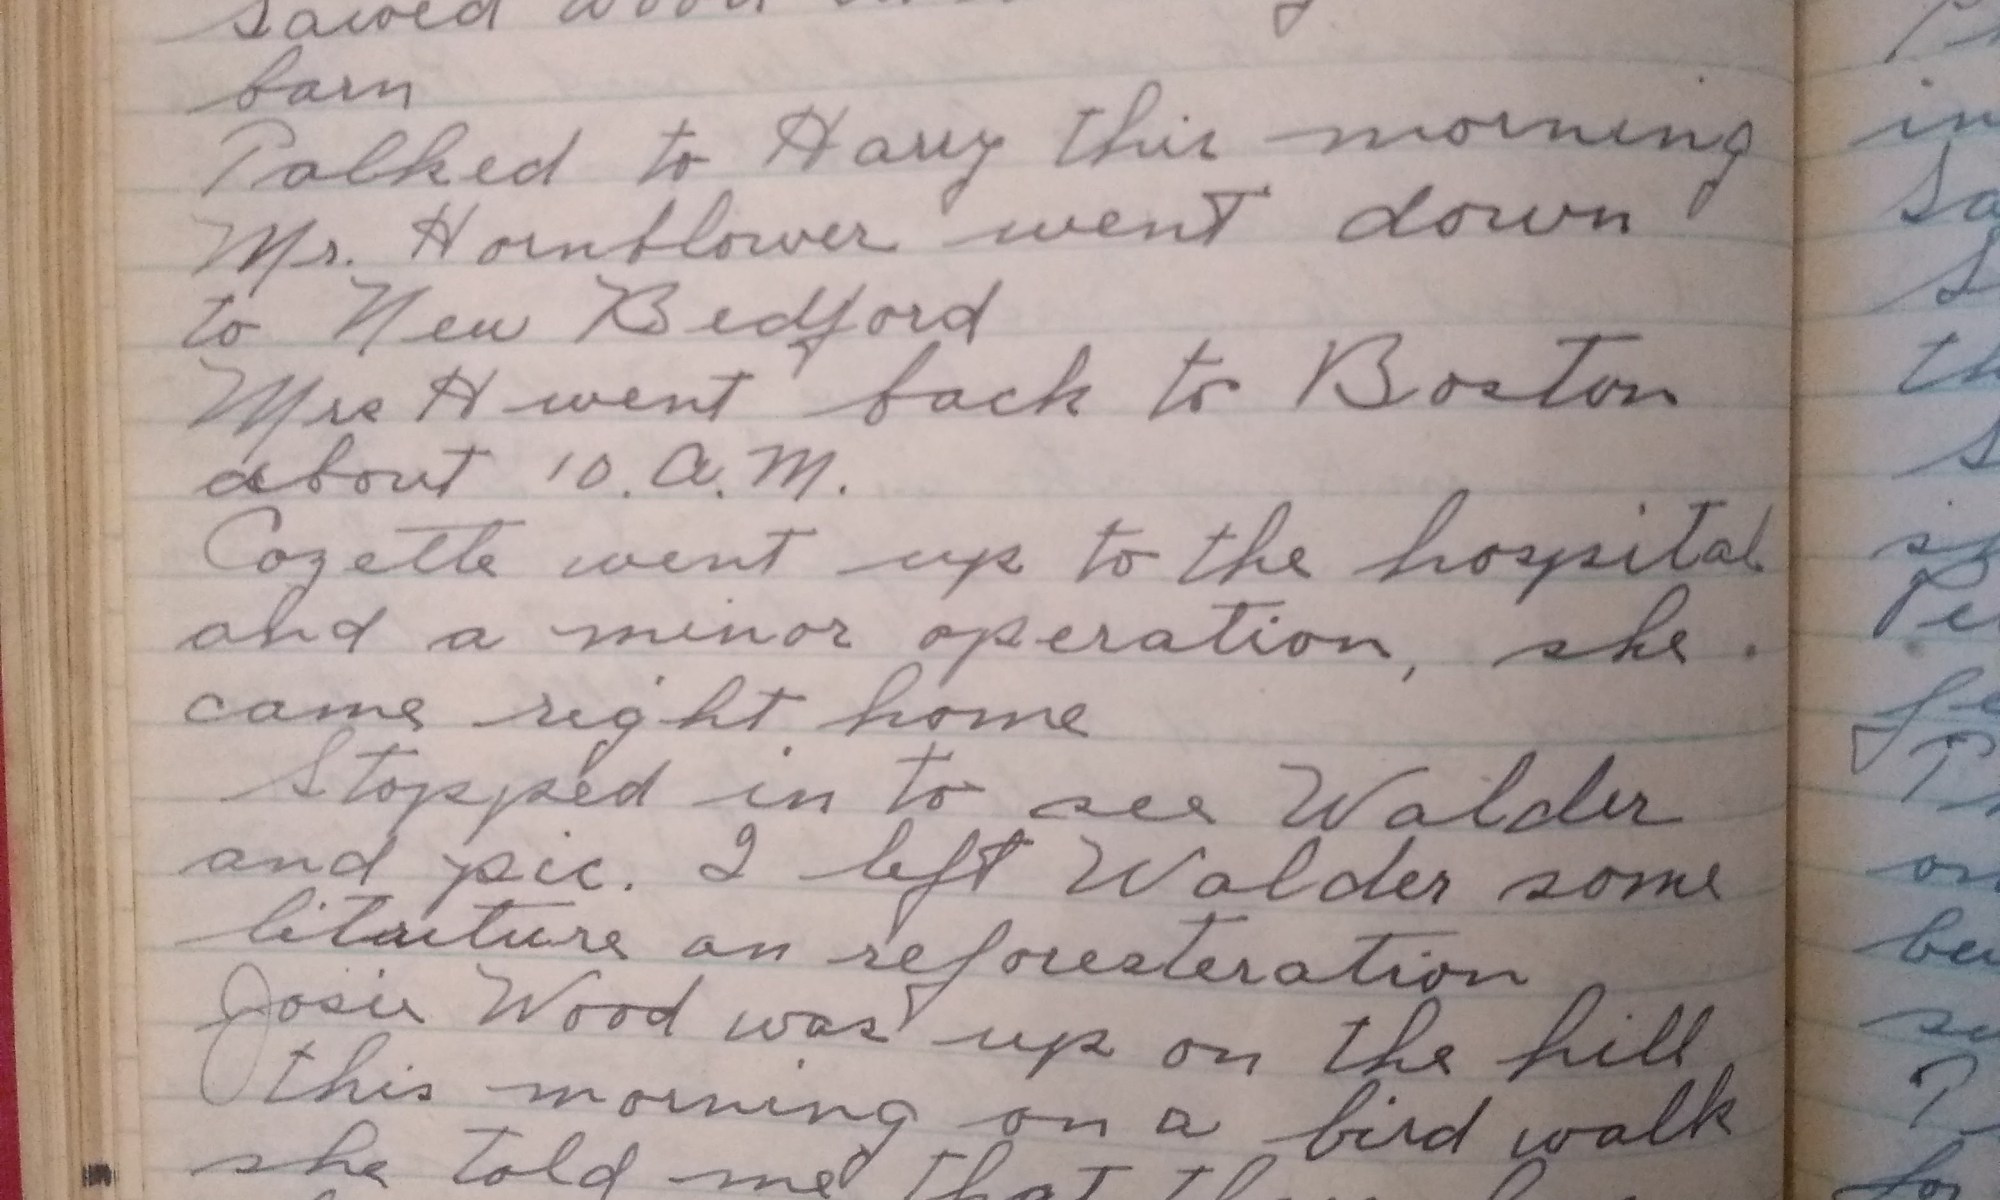 sawed wood
barn
Talked to Harry this morning
Mr. Hornblower went down
to New Bedford
Mrs H went back to Boston
about 10. A.M.
Cozette went up to the hospital
and a minor operation, she
came right home
Stopped in to see Walder
and pic. I left Walder some
litauture on reforesteration
Josie Wood was up on the hill
this morning on a bird walk
she told me that